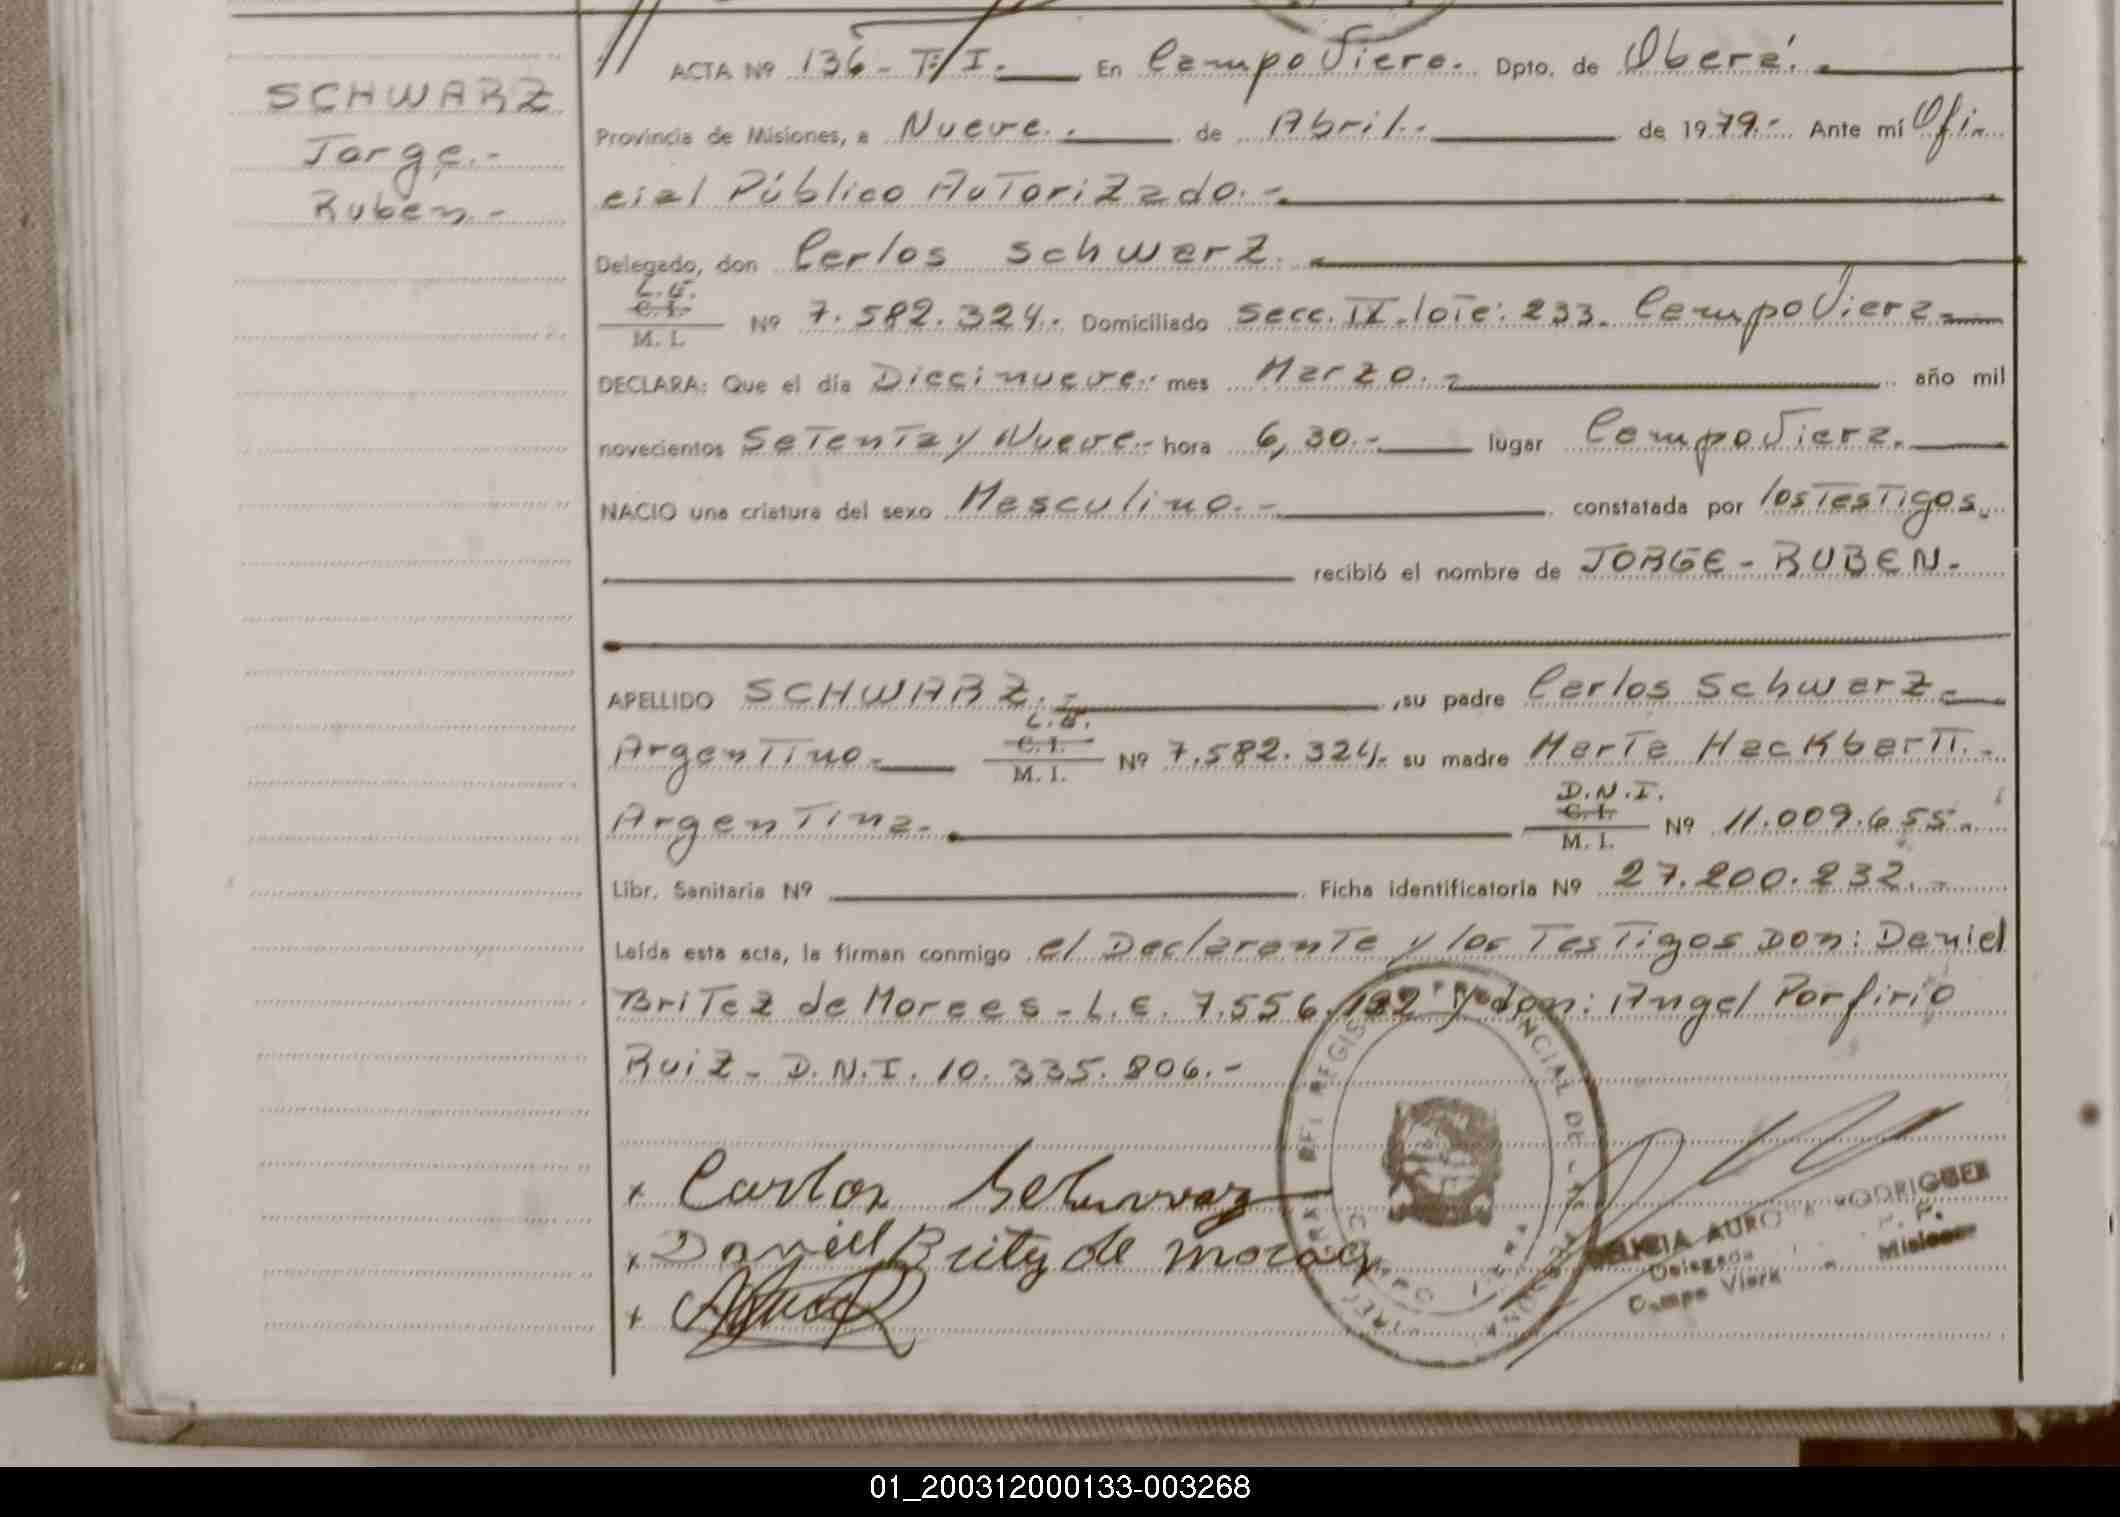 SCHWARZ
Jorge.-
Ruben.-
ACTA Nº 136 - T/I. En Campo Viera. Dpto. de Oberá.
Provincia de Misiones, a Nueve. de Abril. de 1979.- Ante mí Ofi-
cial Público Autorizado.-
Delegado, don Carlos Schwarz.
L.E.
C.I.
M. I.
Nº 7.582.324.- Domiciliado Secc. IX. lote: 233. Campo Viera.
DECLARA: Que el día Diecinueve.- mes Marzo.- año mil
novecientos Setenta y Nueve.- hora 6,30.- lugar Campo Viera.
NACIO una criatura del sexo Masculino.- constatada por los Testigos.
recibió el nombre de JORGE - RUBEN.-
APELLIDO SCHWARZ.- ,su padre Carlos Schwarz.
Argentino.- L.E. C.I. M. I. Nº 7.582.324.- su madre Marta Hackbartt.-
Argentina.- D.N.I. C.I. M. I. Nº 11.009.655.-
Libr. Sanitaria Nº Ficha identificatoria Nº 27.200.232.-
Leída esta acta, la firman conmigo el Declarante y los Testigos Don: Daniel
Britez de Moraes - L.E. 7.556.182 y don: Angel Porfirio
Ruiz - D.N.I. 10.335.806.-
x Carlos Schwarz
x Daniel Britez de moraes
x
REGISTRO PROVINCIAL DE LAS PERSONAS
CAMPO VIERA
DELICIA AURORA RODRIGUEZ
Delegada
Campo Viera - Misiones
01_200312000133-003268